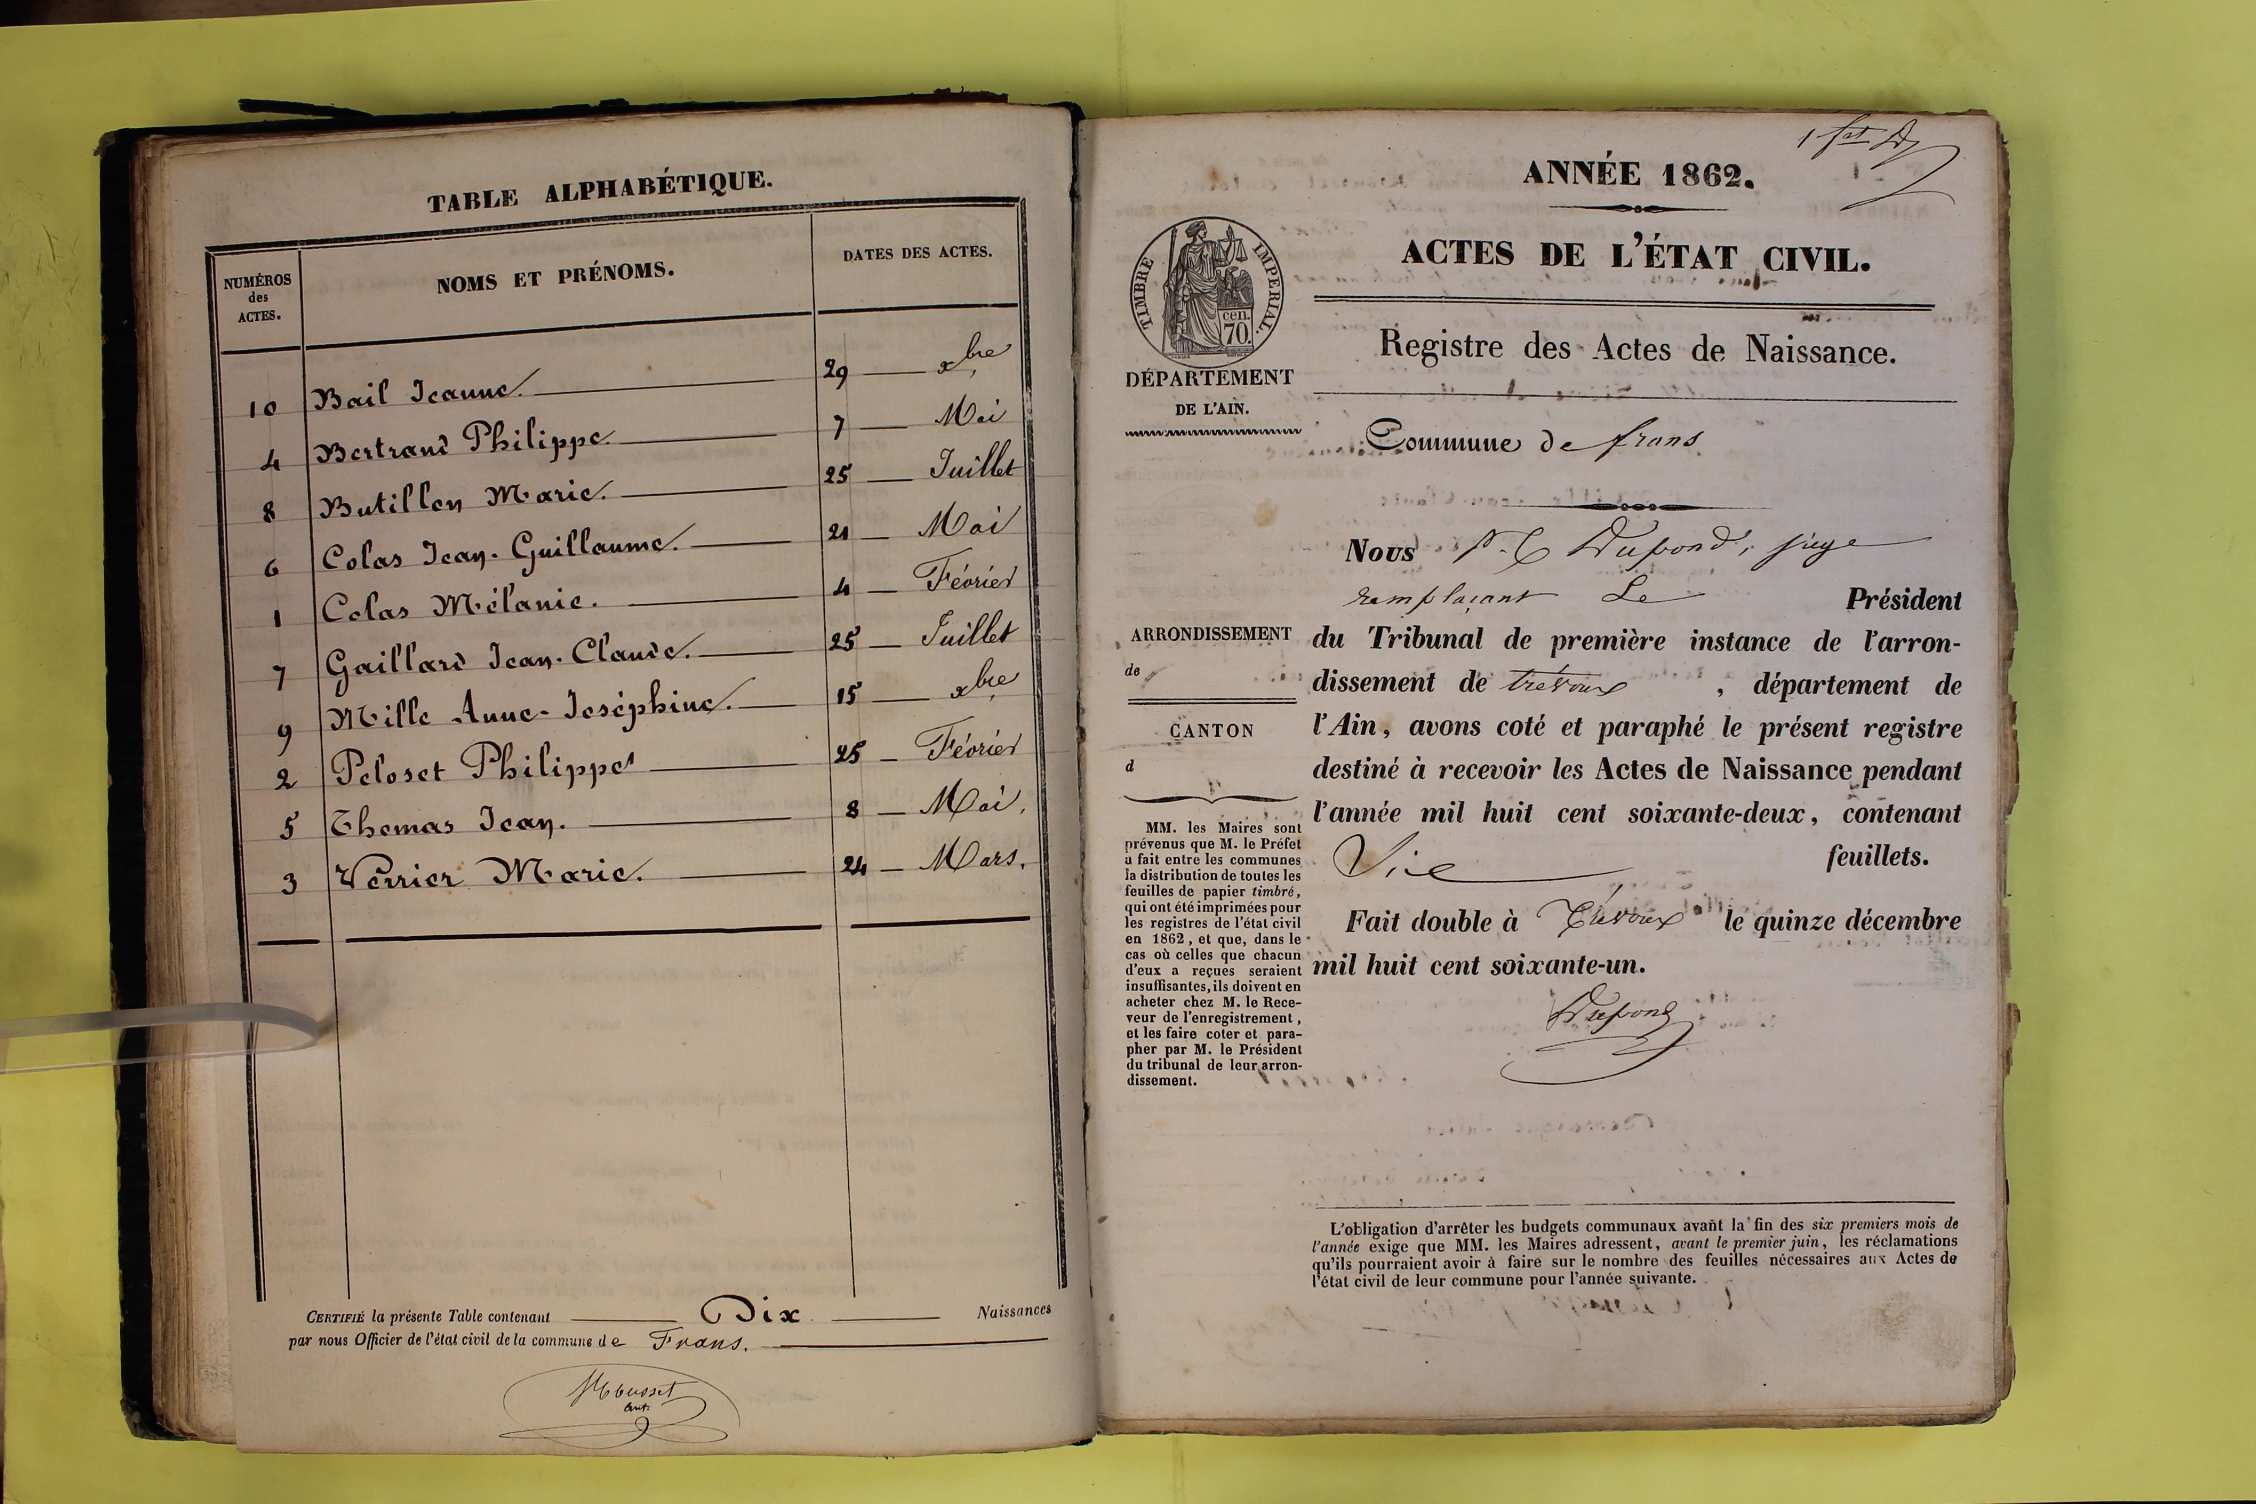 TABLE ALPHABÉTIQUE.
NUMÉROS des ACTES. NOMS ET PRÉNOMS. DATES DES ACTES.
10 Bail Jeanne. 29 xbre
4 Bertrand Philippe. 7 Mai
8 Butillon Marie. 25 Juillet
6 Colas Jean-Guillaume. 21 Mai
1 Colas Mélanie. 4 Février
7 Gaillard Jean-Claude. 25 Juillet
9 Mille Anne-Joséphine. 15 xbre
2 Peloset Philippe 25 Février
5 Thomas Jean. 8 Mai.
3 Verrier Marie. 24 Mars.
CERTIFIÉ la présente Table contenant Dix Naissances
par nous Officier de l'état civil de la commune de Frans.
Mousset
1 fet
ANNÉE 1862.
ACTES DE L'ÉTAT CIVIL.
TIMBRE IMPERIAL.
cen.
70.
Registre des Actes de Naissance.
DÉPARTEMENT
DE L'AIN.
Commune de frans
Nous Dupond, juge
remplaçant Le Président
du Tribunal de première instance de l'arron-
dissement de trévoux, département de
l'Ain, avons coté et paraphé le présent registre
destiné à recevoir les Actes de Naissance pendant
l'année mil huit cent soixante-deux, contenant
Six feuillets.
Fait double à Trévoux le quinze décembre
mil huit cent soixante-un.
Dupond
ARRONDISSEMENT
de
CANTON
d
MM. les Maires sont
prévenus que M. le Préfet
a fait entre les communes
la distribution de toutes les
feuilles de papier timbré,
qui ont été imprimées pour
les registres de l'état civil
en 1862, et que, dans le
cas où celles que chacun
d'eux a reçues seraient
insuffisantes, ils doivent en
acheter chez M. le Rece-
veur de l'enregistrement,
et les faire coter et para-
pher par M. le Président
du tribunal de leur arron-
dissement.
L'obligation d'arrêter les budgets communaux avant la fin des six premiers mois de
l'année exige que MM. les Maires adressent, avant le premier juin, les réclamations
qu'ils pourraient avoir à faire sur le nombre des feuilles nécessaires aux Actes de
l'état civil de leur commune pour l'année suivante.